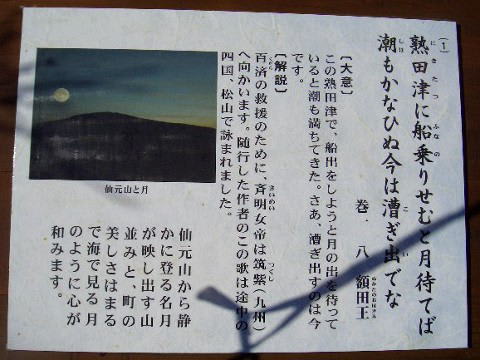 (1)
熟田津に船乗りせむと月待てば
潮もかなひぬ今は漕ぎ出でな
巻一 八 額田王
〔大意〕
この熟田津で、船出をしようと月の出を待って
いると潮も満ちてきた。さあ、漕ぎ出すのは今
です。
〔解説〕
百済の救援のために、斉明女帝は筑紫(九州)
へ向かいます。随行した作者のこの歌は途中の
四国、松山で詠まれました。
仙元山と月
仙元山から静
かに登る名月
が映し出す山
並みと、町の
美しさはまる
で海で見る月
のように心が
和みます。